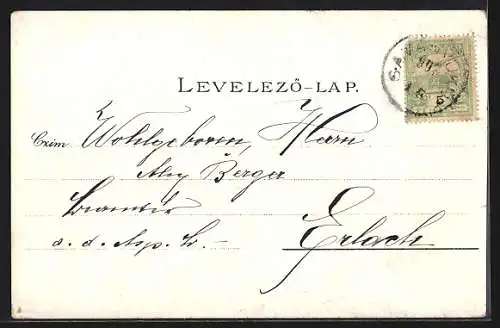 LEVELEZŐ-LAP.
Czím Wohlgeborn, Herrn
Berger
Beamter
a. d. Asp. B. –
Erlach